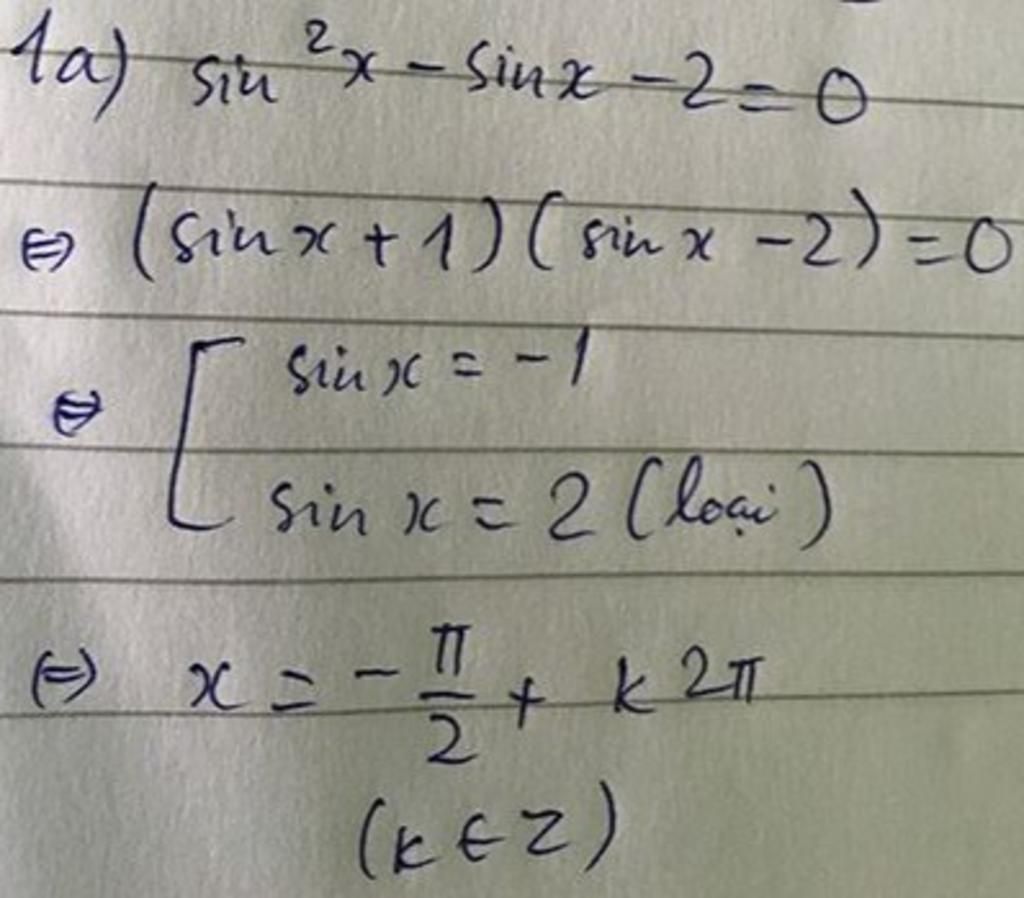 1a) sin²x - sinx - 2 = 0
⇔ (sinx + 1)(sinx - 2) = 0
⇔ [ sinx = -1
sinx = 2 (loại)
⇔ x = -π/2 + k2π
(k ∈ Z)